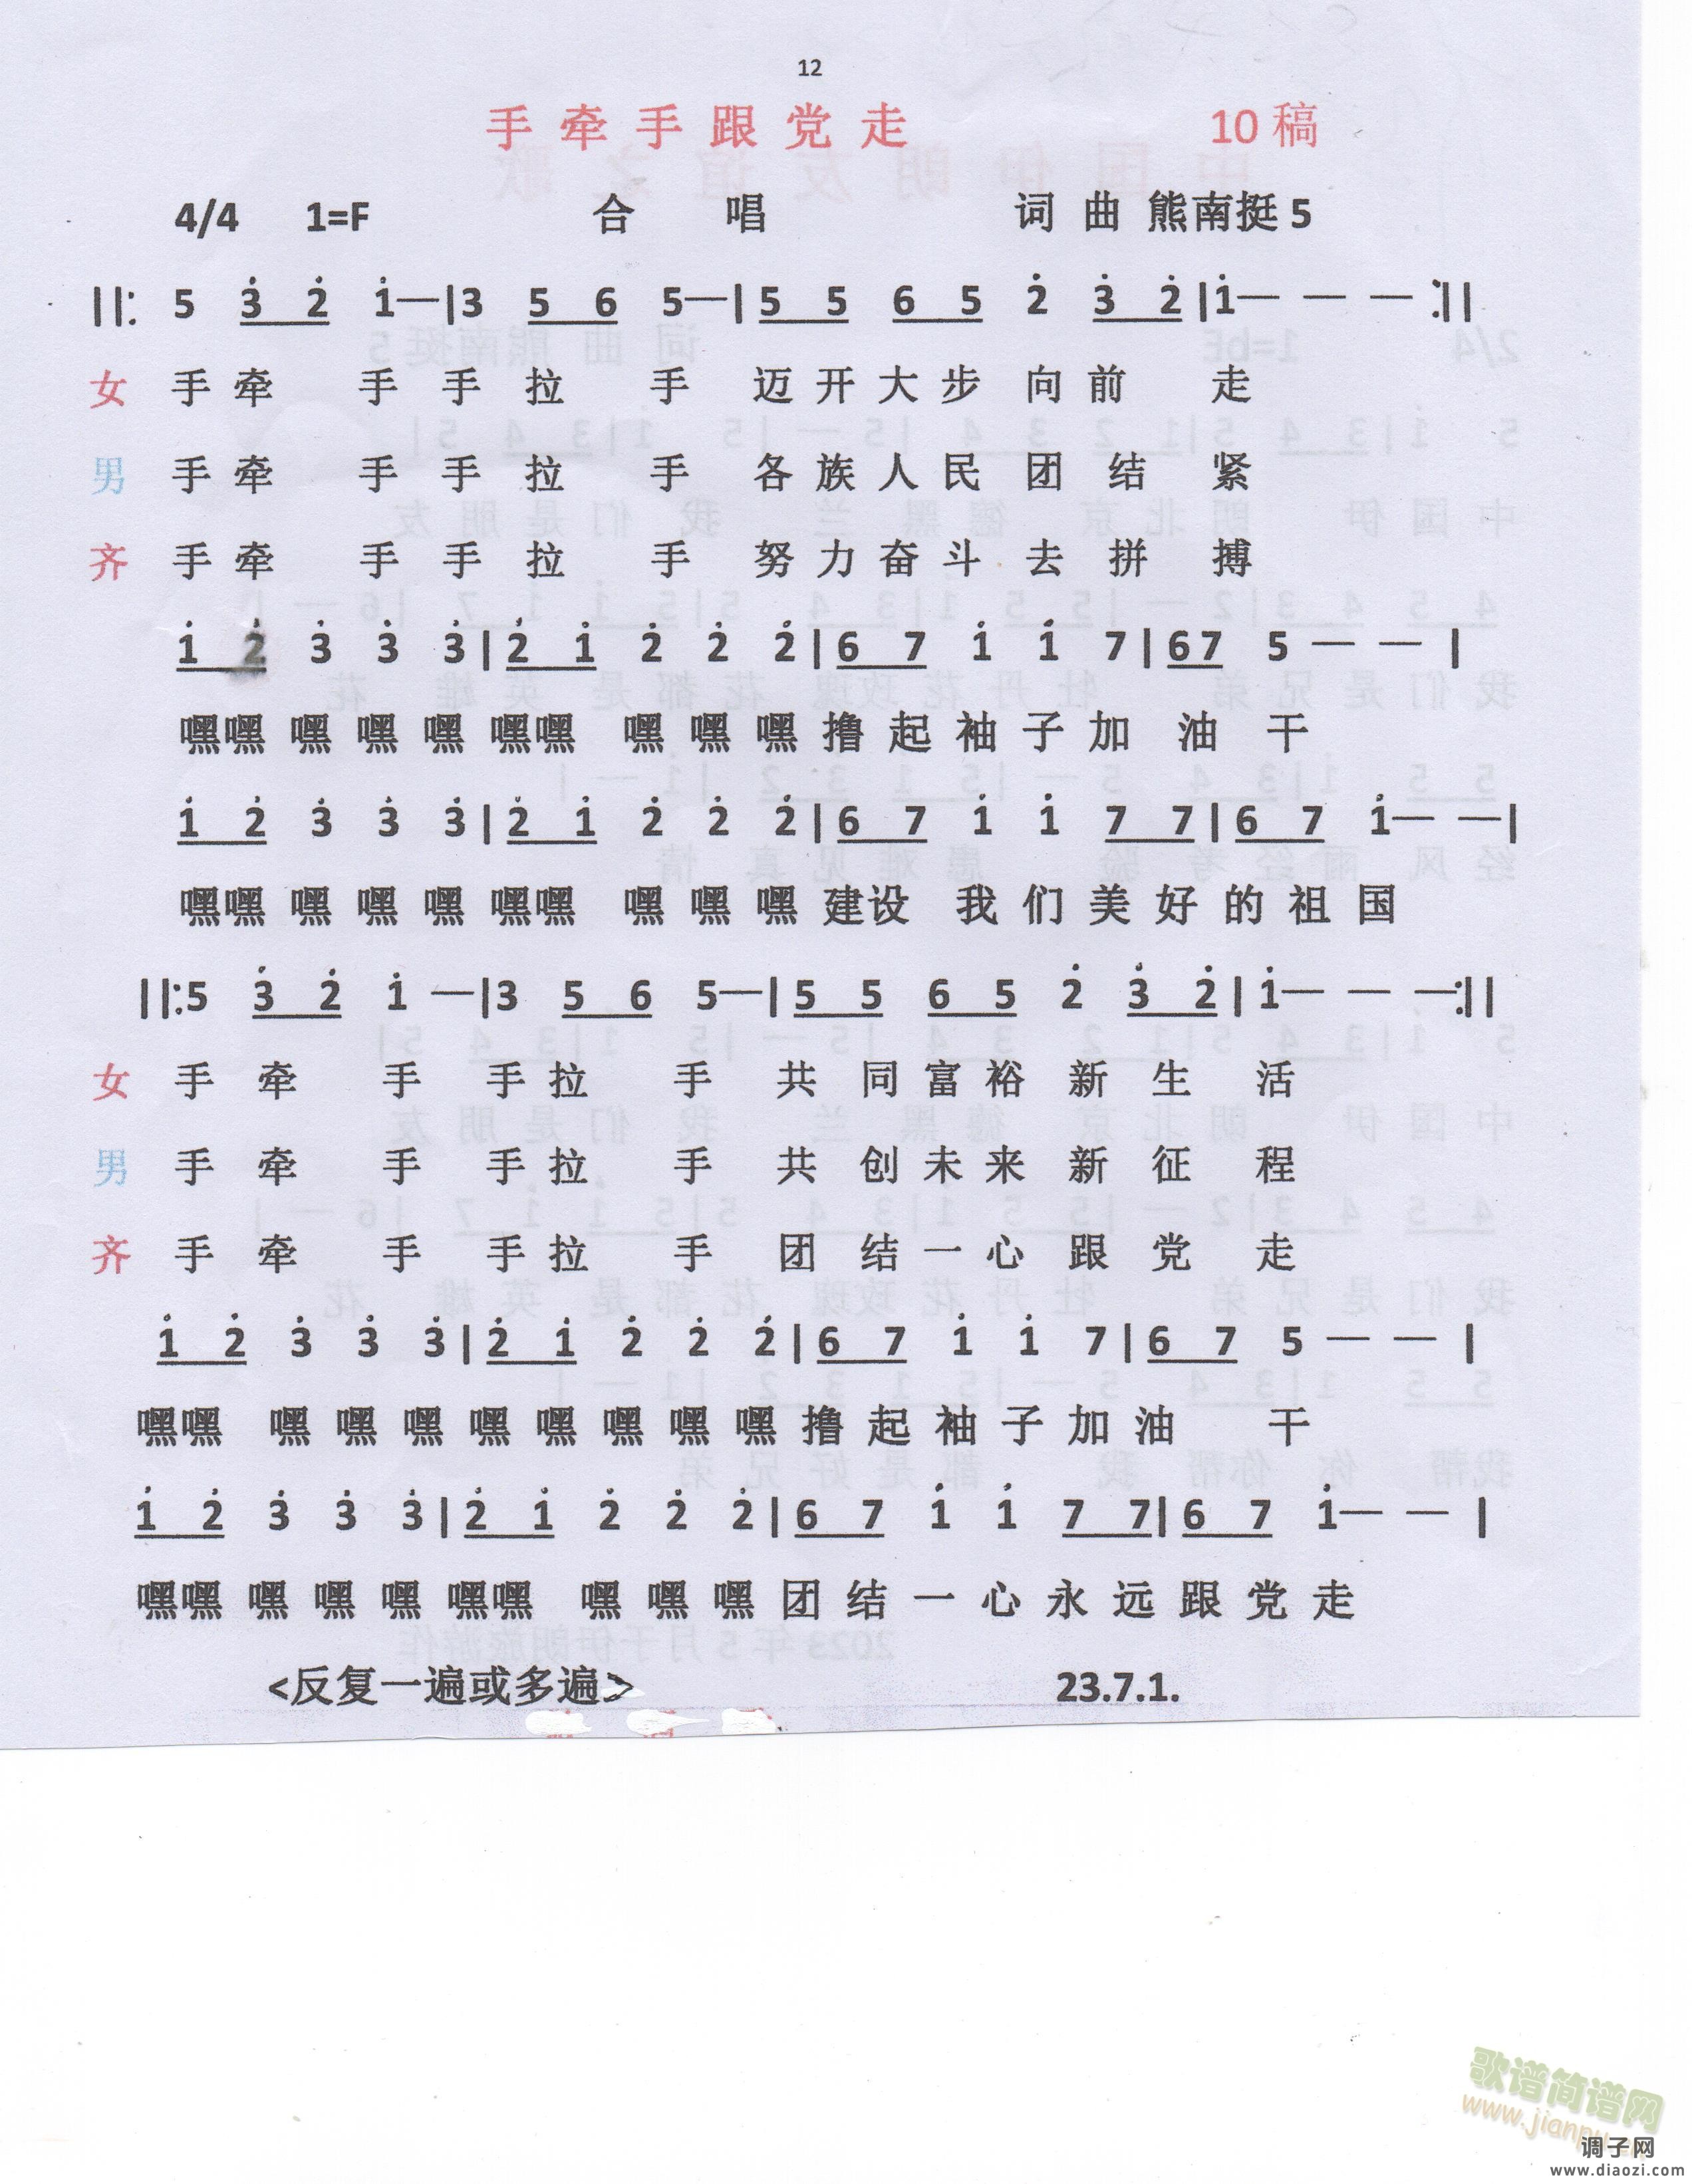 12
手牵手跟党走 10稿
4/4 1=F 合 唱 词 曲 熊南挺 5
||: 5 3̇ 2̇ 1̇—|3 5 6 5—|5 5 6 5 2̇ 3̇ 2̇|1̇— — — :||
女 手牵 手 手拉 手 迈开大步 向前 走
男 手牵 手 手拉 手 各族人民 团结 紧
齐 手牵 手 手拉 手 努力奋斗 去拼 搏
1̇ 2̇ 3̇ 3̇ 3̇|2̇ 1̇ 2̇ 2̇ 2̇|6 7 1̇ 1̇ 7|67 5 — — |
嘿嘿 嘿 嘿 嘿 嘿嘿 嘿 嘿 嘿 撸起袖子加 油 干
1̇ 2̇ 3̇ 3̇ 3̇|2̇ 1̇ 2̇ 2̇ 2̇|6 7 1̇ 1̇ 7 7|6 7 1̇— —|
嘿嘿 嘿 嘿 嘿 嘿嘿 嘿 嘿 嘿 建设 我们美好的祖国
||:5 3̇ 2̇ 1̇ —|3 5 6 5—|5 5 6 5 2̇ 3̇ 2̇|1̇— — —:||
女 手 牵 手 手拉 手 共 同富裕 新 生 活
男 手 牵 手 手拉 手 共 创未来 新 征 程
齐 手 牵 手 手拉 手 团 结一心 跟 党 走
1̇ 2̇ 3̇ 3̇ 3̇|2̇ 1̇ 2̇ 2̇ 2̇|6 7 1̇ 1̇ 7|6 7 5 — — |
嘿嘿 嘿 嘿 嘿 嘿 嘿 嘿 嘿 嘿 撸起袖子加油 干
1̇ 2̇ 3̇ 3̇ 3̇|2̇ 1̇ 2̇ 2̇ 2̇|6 7 1̇ 1̇ 7 7|6 7 1̇— — |
嘿嘿 嘿 嘿 嘿 嘿嘿 嘿 嘿 嘿 团结一心永远跟党走
<反复一遍或多遍> 23.7.1.
歌谱简谱网
调子网
www.diaozi.com